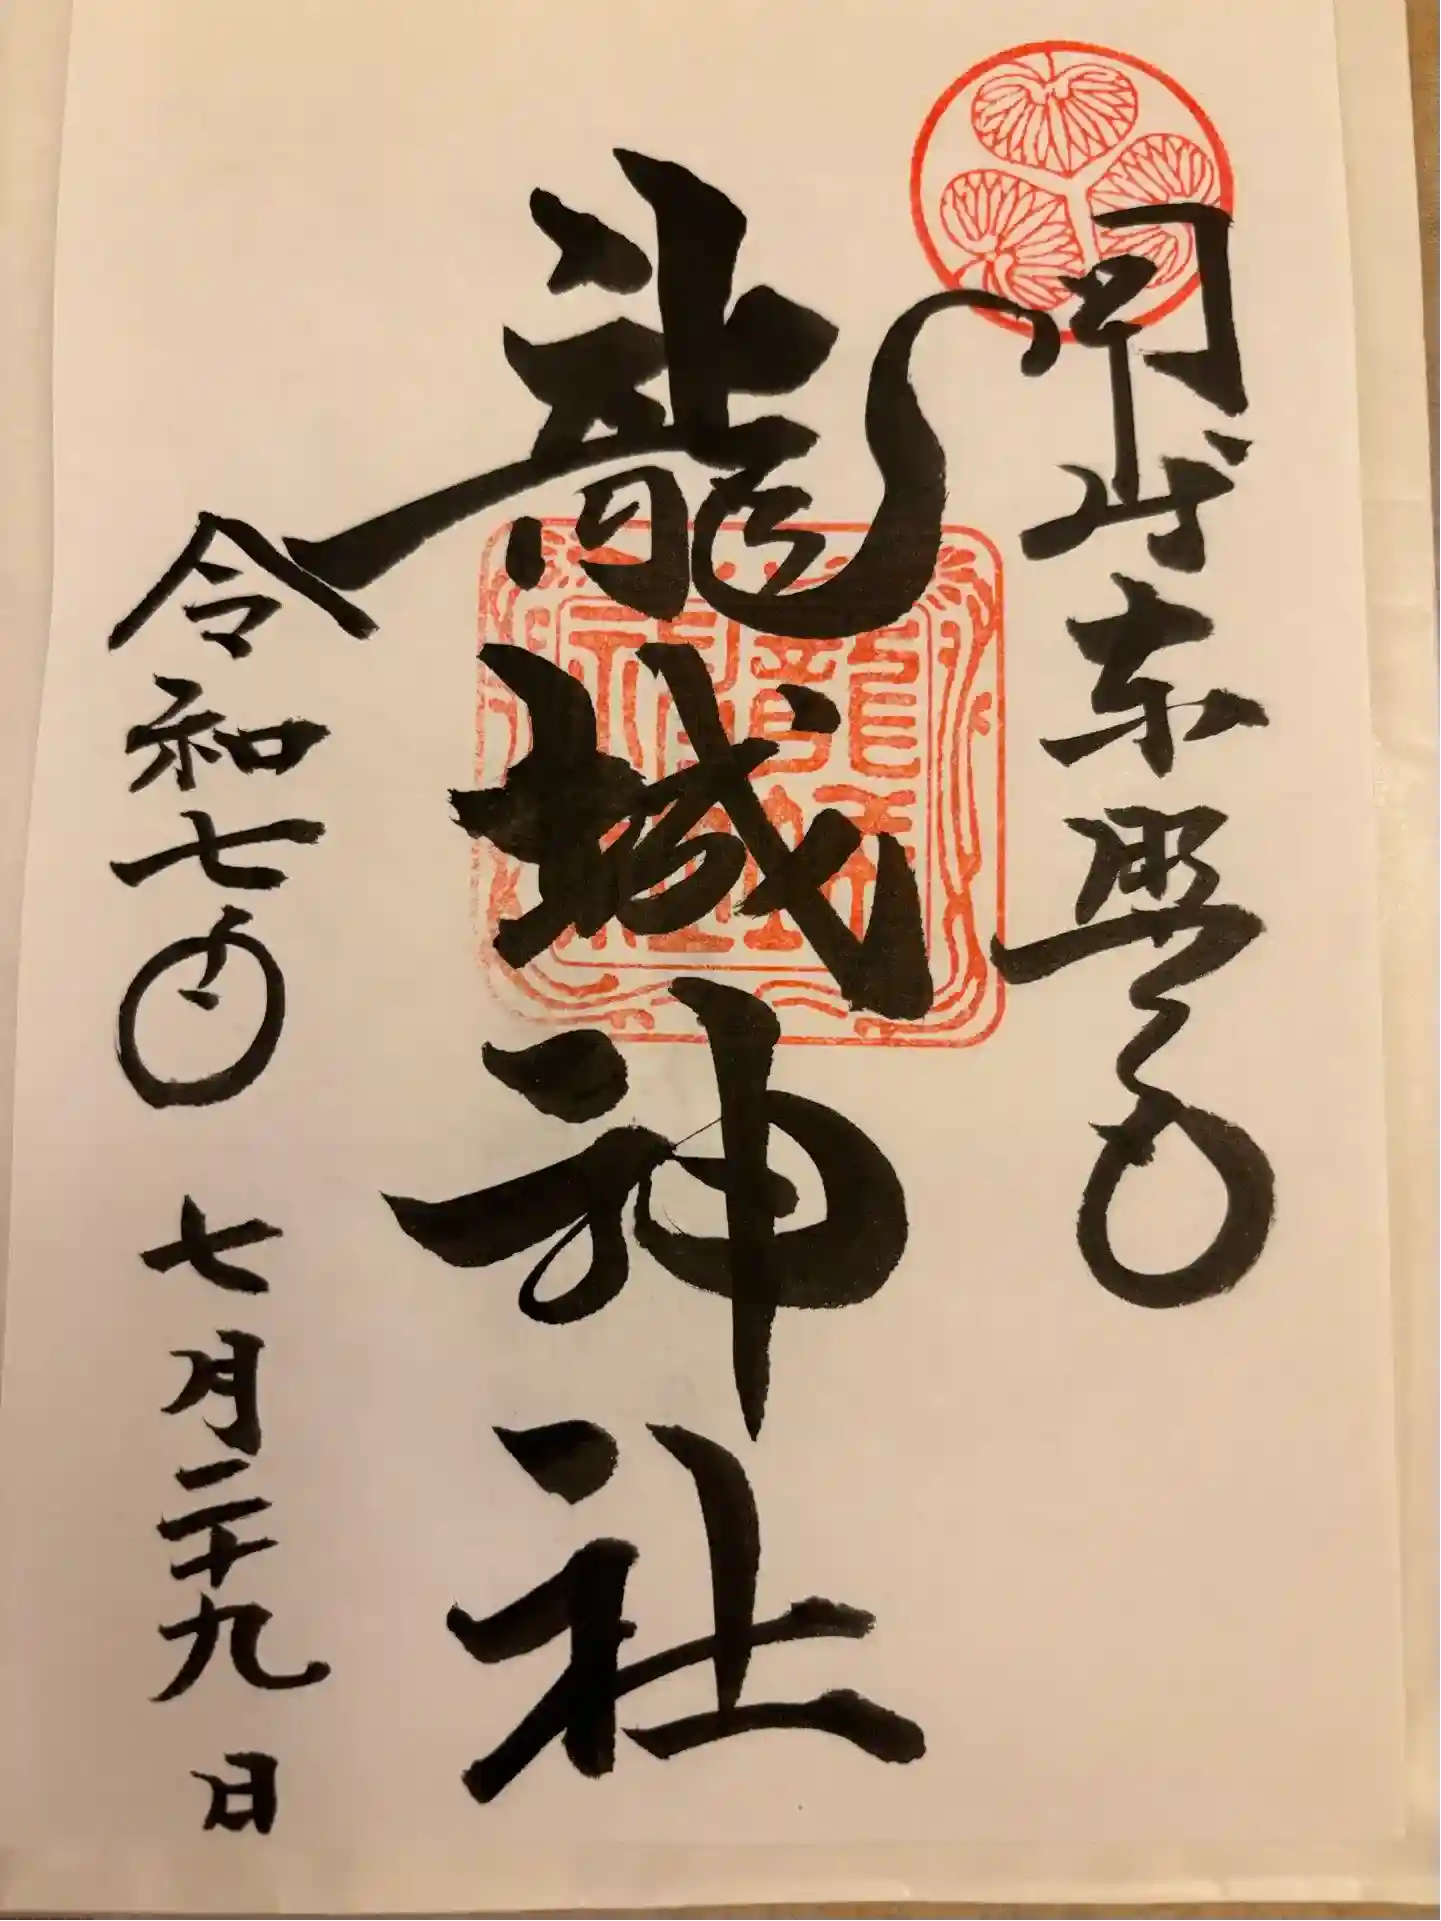 岡崎東照宮
龍城神社
令和七年 七月二十九日